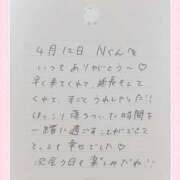 4月12日 Nくんへ
いつもありがとう〜♡
早く来てくれて、延長もして
くれて、すごくうれしかった!!
ほっこり落ちついた時間を
一緒に過ごすことができて
とっても幸せでした♡
次会う日も楽しみだね!!